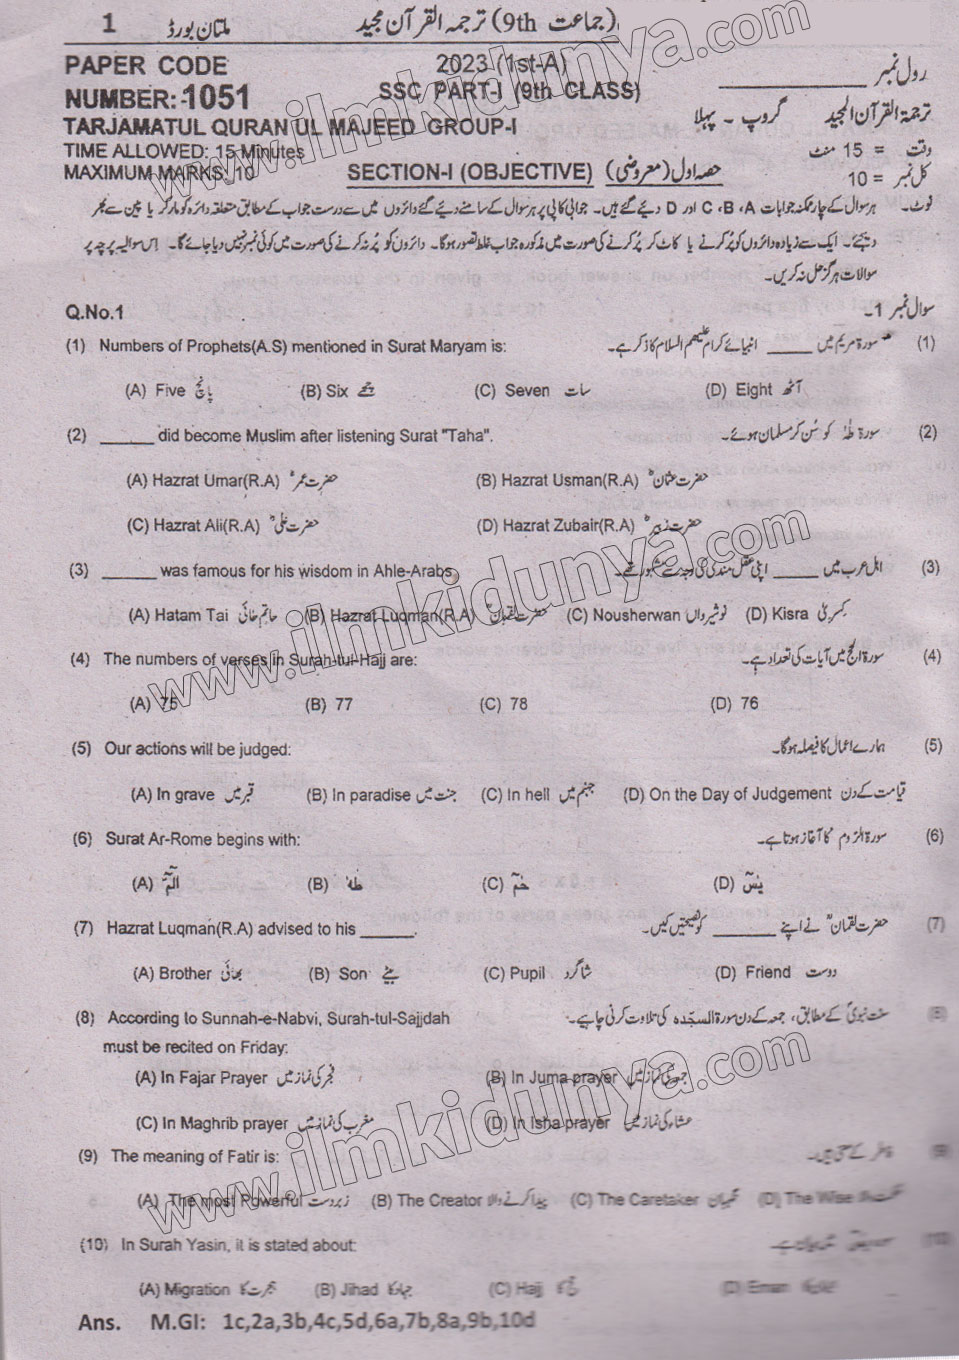 1 ملتان بورڈ (جماعت 9th) ترجمۃ القرآن مجید
PAPER CODE 2023 (1st-A) رول نمبر
NUMBER: 1051 SSC PART-I (9th CLASS)
TARJAMATUL QURAN UL MAJEED GROUP-I ترجمۃ القرآن المجید گروپ ۔ پہلا
TIME ALLOWED: 15 Minutes وقت = 15 منٹ
MAXIMUM MARKS: 10 SECTION-I (OBJECTIVE) حصہ اول (معروضی) کل نمبر = 10
نوٹ۔ ہر سوال کے چار ممکنہ جوابات A، B، C اور D دیئے گئے ہیں۔ جوابی کاپی پر ہر سوال کے سامنے دیئے گئے دائروں میں سے درست جواب کے مطابق متعلقہ دائرہ کو مارکر یا پین سے بھر
دیجئے۔ ایک سے زیادہ دائروں کو پُر کرنے یا کاٹ کر پُر کرنے کی صورت میں مذکورہ جواب غلط تصور ہوگا۔ دائروں کو پُر نہ کرنے کی صورت میں کوئی نمبر نہیں دیا جائے گا۔ اِس سوالیہ پرچہ پر
سوالات ہرگز حل نہ کریں۔
Q.No.1 سوال نمبر 1۔
(1) Numbers of Prophets(A.S) mentioned in Surat Maryam is: سورۃ مریم میں ____ انبیائے کرام علیھم السلام کا ذکر ہے۔ (1)
(A) Five پانچ (B) Six چھے (C) Seven سات (D) Eight آٹھ
(2) ______ did become Muslim after listening Surat "Taha". سورۃ طٰہٰ کو سُن کر مسلمان ہوئے۔ (2)
(A) Hazrat Umar(R.A) حضرت عمرؓ (B) Hazrat Usman(R.A) حضرت عثمانؓ
(C) Hazrat Ali(R.A) حضرت علیؓ (D) Hazrat Zubair(R.A) حضرت زبیرؓ
(3) ______ was famous for his wisdom in Ahle-Arabs اہل عرب میں ____ اپنی عقل مندی کی وجہ سے مشہور تھے۔ (3)
(A) Hatam Tai حاتم طائی (B) Hazrat Luqman(R.A) حضرت لقمانؒ (C) Nousherwan نوشیرواں (D) Kisra کِسریٰ
(4) The numbers of verses in Surah-tul-Hajj are: سورۃ الحج میں آیات کی تعداد ہے۔ (4)
(A) 75 (B) 77 (C) 78 (D) 76
(5) Our actions will be judged: ہمارے اعمال کا فیصلہ ہوگا۔ (5)
(A) In grave قبر میں (B) In paradise جنت میں (C) In hell جہنم میں (D) On the Day of Judgement قیامت کے دن
(6) Surat Ar-Rome begins with: سورۃ الروم کا آغاز ہوتا ہے۔ (6)
(A) الٓمّٓ (B) طٰهٰ (C) حٰمٓ (D) يٰسٓ
(7) Hazrat Luqman(R.A) advised to his ______. حضرت لقمانؒ نے اپنے ______ کو نصیحتیں کیں۔ (7)
(A) Brother بھائی (B) Son بیٹے (C) Pupil شاگرد (D) Friend دوست
(8) According to Sunnah-e-Nabvi, Surah-tul-Sajjdah سنت نبویؐ کے مطابق، جمعہ کے دن سورۃ السجدہ کی تلاوت کرنی چاہیے۔ (8)
must be recited on Friday:
(A) In Fajar Prayer فجر کی نماز میں (B) In Juma prayer جمعہ کی نماز میں
(C) In Maghrib prayer مغرب کی نماز میں (D) In Isha prayer عشاء کی نماز میں
(9) The meaning of Fatir is: فاطر کے معنی ہیں۔ (9)
(A) The most Powerful زبردست (B) The Creator پیدا کرنے والا (C) The Caretaker نگہبان (D) The Wise
(10) In Surah Yasin, it is stated about: (10)
(A) Migration ہجرت کا (B) Jihad جہاد کا (C) Hajj حج کا (D) Eman
Ans. M.GI: 1c,2a,3b,4c,5d,6a,7b,8a,9b,10d
www.ilmkidunya.com
www.ilmkidunya.com
www.ilmkidunya.com